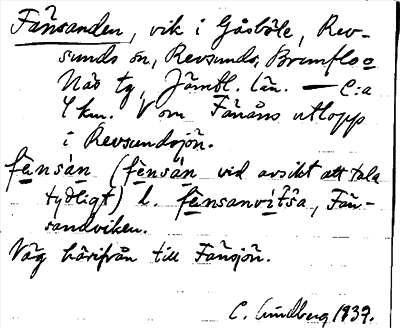 Fänsanden, vik i Gåsböle, Rev-
sunds sn, Revsunds, Brunflo o
Näs tg, Jämtl. län. — C:a
4 km. V om Fänåns utlopp
i Revsundsjön.
fènsàn (fènsàn vid avsikt att tala
tydligt) l. fènsanvi̇̀tʃa, Fän-
sandviken.
Väg härifrån till Fänsjön.
C. Lindberg 1939.